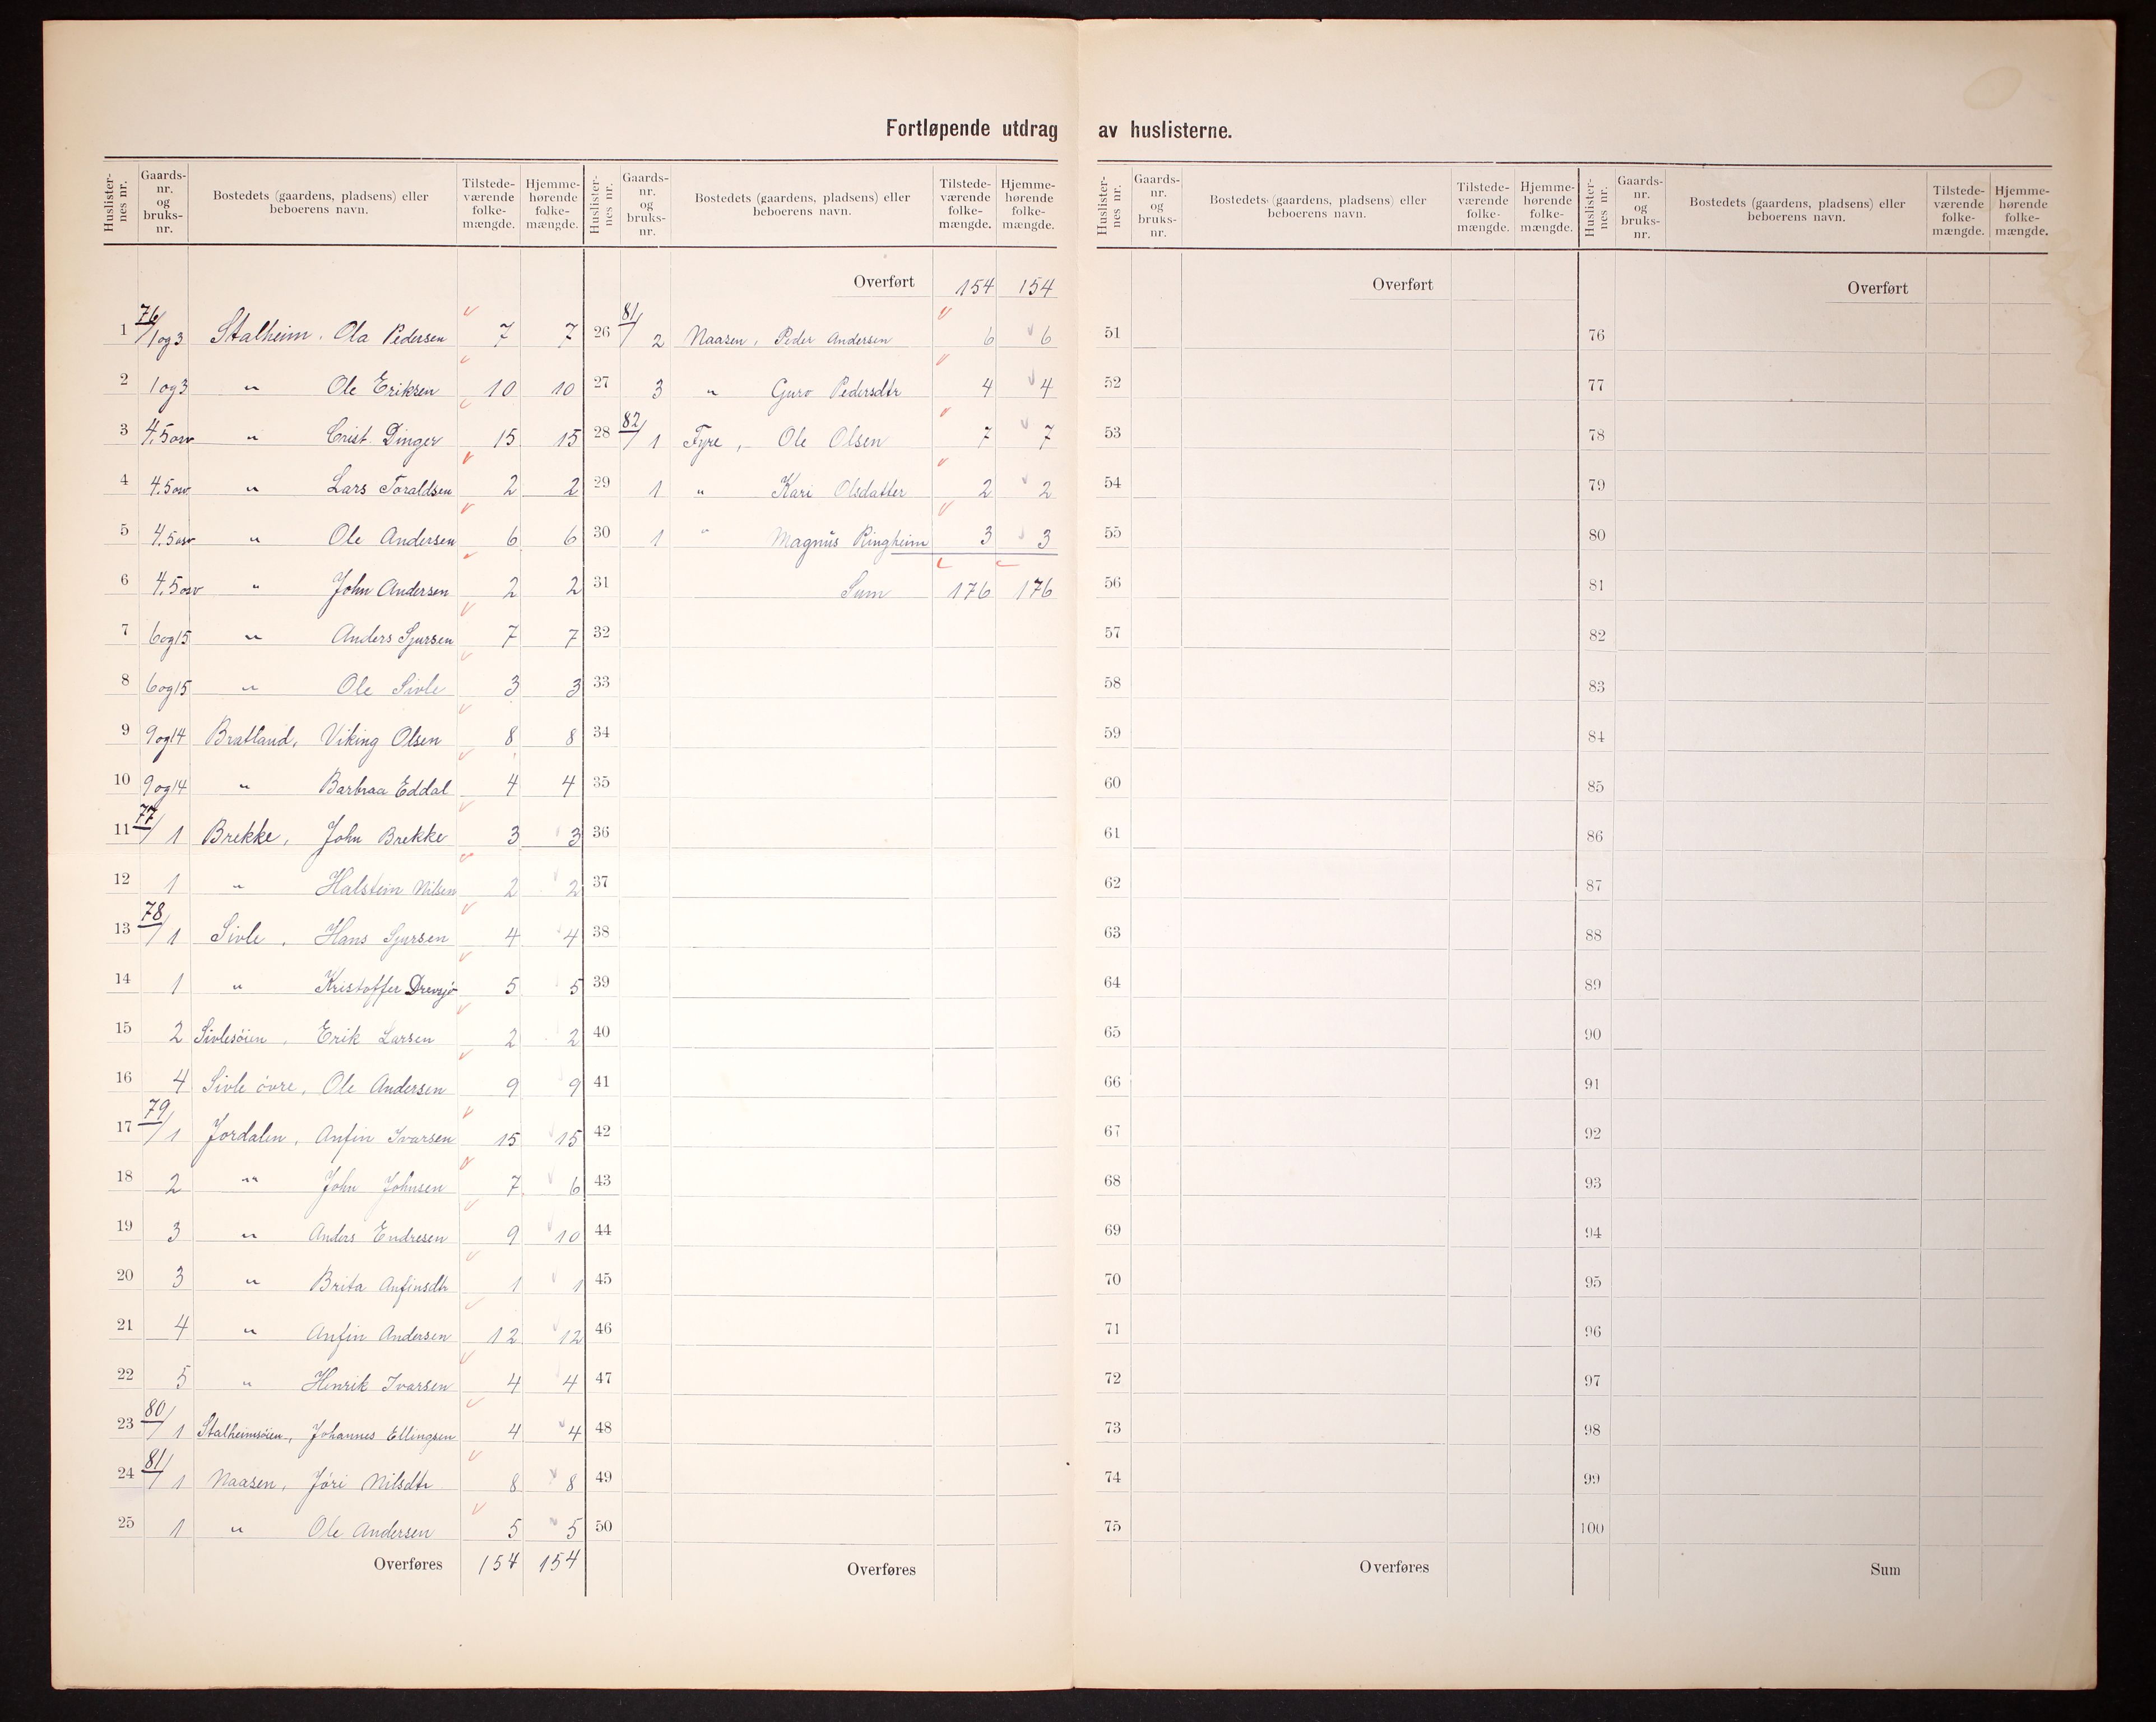 Fortløpende utdrag av huslisterne.
Huslister-nes nr. | Gaards-nr. og bruks-nr. | Bostedets (gaardens, pladsens) eller beboerens navn. | Tilstede-værende folke-mængde. | Hjemme-hørende folke-mængde.
1 76/1og3 Stalheim, Ola Pedersen 7 7
2 1og3 " Ole Eriksen 10 10
3 4.5osv " Crist. Dinger 15 15
4 4.5osv " Lars Toraldsen 2 2
5 4.5osv " Ole Andersen 6 6
6 4.5osv " John Andersen 2 2
7 6og15 " Anders Sjursen 7 7
8 6og15 " Ole Sivle 3 3
9 9og14 Bratland, Viking Olsen 8 8
10 9og14 " Barbraa Eddal 4 4
11 77/1 Brekke, John Brekke 3 3
12 1 " Halstein Nilsen 2 2
13 78/1 Sivle, Hans Sjursen 4 4
14 1 " Kristoffer 5 5
15 2 Sivlesöien, Erik Larsen 2 2
16 4 Sivle övre, Ole Andersen 9 9
17 79/1 Jordalen, Anfin Ivarsen 15 15
18 2 " John Johnsen 7 6
19 3 " Anders Endresen 9 10
20 3 " Brita Anfinsdtr 1 1
21 4 " Anfin Andersen 12 12
22 5 " Henrik Ivarsen 4 4
23 80/1 Stalheimsöien, Johannes Ellingsen 4 4
24 81/1 Naasen, Jöri Nilsdtr 8 8
25 1 " Ole Andersen 5 5
Overføres 154 154
Huslister-nes nr. | Gaards-nr. og bruks-nr. | Bostedets (gaardens, pladsens) eller beboerens navn. | Tilstede-værende folke-mængde. | Hjemme-hørende folke-mængde.
Overført 154 154
26 81/2 Naasen, Peder Andersen 6 6
27 3 " Guro Pedersdtr 4 4
28 82/1 Fyre, Ole Olsen 7 7
29 1 " Kari Olsdatter 2 2
30 1 " Magnus Ringheim 3 3
31 Sum 176 176
32
33
34
35
36
37
38
39
40
41
42
43
44
45
46
47
48
49
50
Overføres
Huslister-nes nr. | Gaards-nr. og bruks-nr. | Bostedets (gaardens, pladsens) eller beboerens navn. | Tilstede-værende folke-mængde. | Hjemme-hørende folke-mængde.
Overført
51
52
53
54
55
56
57
58
59
60
61
62
63
64
65
66
67
68
69
70
71
72
73
74
75
Overføres
Huslister-nes nr. | Gaards-nr. og bruks-nr. | Bostedets (gaardens, pladsens) eller beboerens navn. | Tilstede-værende folke-mængde. | Hjemme-hørende folke-mængde.
Overført
76
77
78
79
80
81
82
83
84
85
86
87
88
89
90
91
92
93
94
95
96
97
98
99
100
Sum